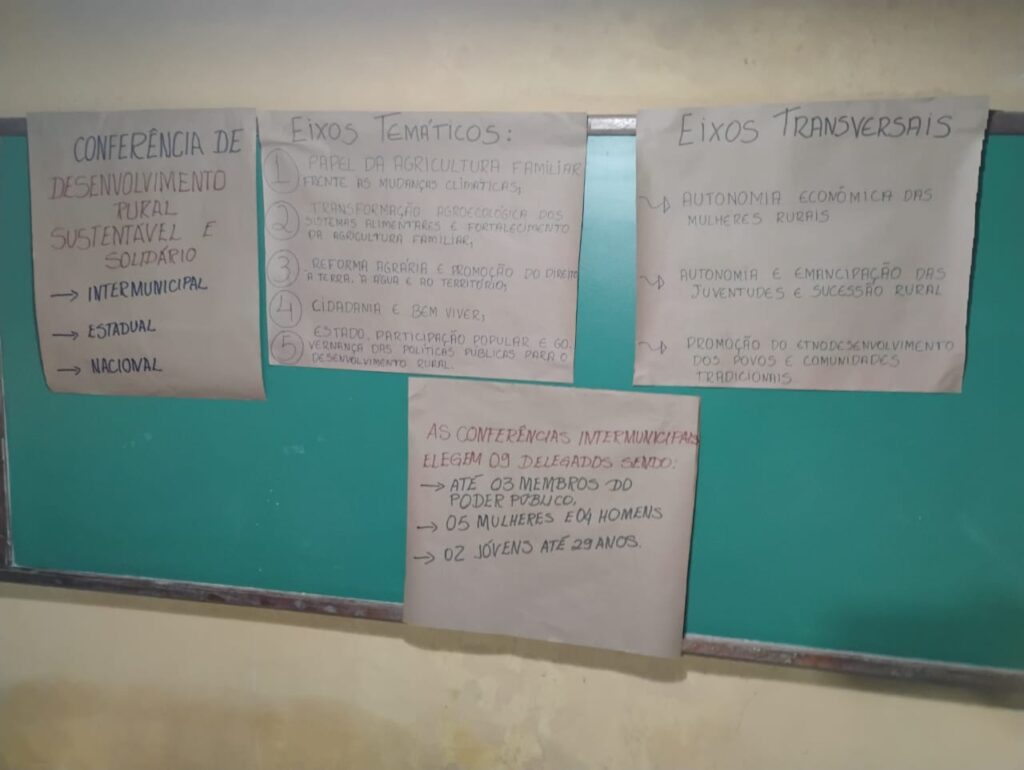 CONFERÊNCIA DE
DESENVOLVIMENTO
RURAL
SUSTENTÁVEL E
SOLIDÁRIO
→ INTERMUNICIPAL
→ ESTADUAL
→ NACIONAL
EIXOS TEMÁTICOS:
1 PAPEL DA AGRICULTURA FAMILIAR
FRENTE AS MUDANÇAS CLIMÁTICAS;
2 TRANSFORMAÇÃO AGROECOLÓGICA DOS
SISTEMAS ALIMENTARES E FORTALECIMENTO
DA AGRICULTURA FAMILIAR;
3 REFORMA AGRÁRIA E PROMOÇÃO DO DIREITO
A TERRA, A ÁGUA E AO TERRITÓRIO;
4 CIDADANIA E BEM VIVER;
5 ESTADO, PARTICIPAÇÃO POPULAR E GO
VERNANÇA DAS POLÍTICAS PÚBLICAS PARA O
DESENVOLVIMENTO RURAL.
EIXOS TRANSVERSAIS
AUTONOMIA ECONÔMICA DAS
MULHERES RURAIS
AUTONOMIA E EMANCIPAÇÃO DAS
JUVENTUDES E SUCESSÃO RURAL
PROMOÇÃO DO ETNODESENVOLVIMENTO
DOS POVOS E COMUNIDADES
TRADICIONAIS
AS CONFERÊNCIAS INTERMUNICIPAIS
ELEGEM 09 DELEGADOS SENDO:
→ ATÉ 03 MEMBROS DO
PODER PÚBLICO.
→ 05 MULHERES E 04 HOMENS
→ 02 JÓVENS ATÉ 29 ANOS.